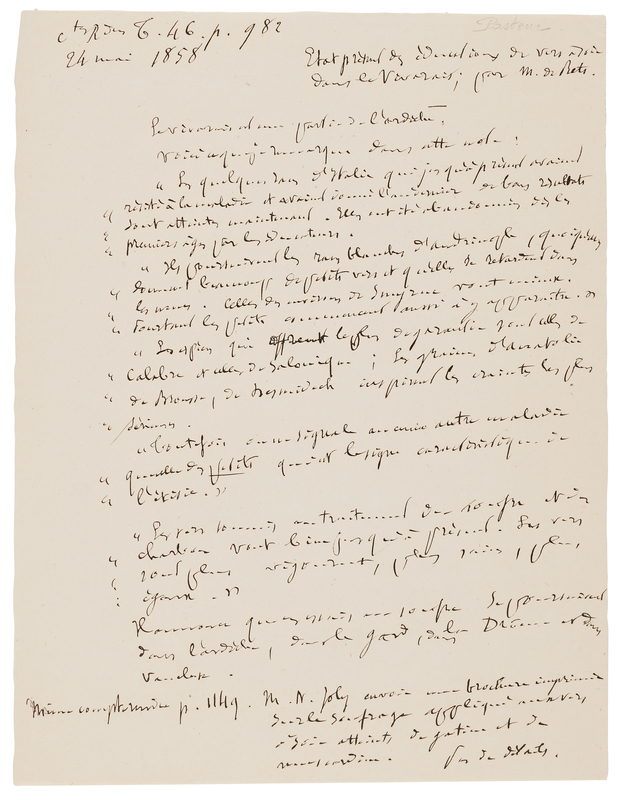 Ctes R des T. 46. p. 982
24 mai 1858
Pasteur
Etat présent des éducations de vers à soie
dans le Vivarais; par M. de Retz.
Le vivarais est une partie de l'ardèche.
Voici ce que je remarque dans cette note:
" Les quelques races d'Italie qui jusqu'à présent avaient
" résisté à la maladie et avaient donné l'an dernier de bons résultats
" sont atteints maintenant. Elles ont été abandonnées dès les
" premiers âges par les éducateurs.
" Ils poursuivent les races blanches d'andrinople, quoiqu'elles
" donnent beaucoup de petits vers et qu'elles se retardent dans
" les mues. Celles des environs de Smyrne vont mieux.
" Pourtant les petits commencent aussi à y apparaître. "
" Les espèces qui offrent le plus de garantie sont celles de
" Calabre et celles de Salonique; Les graines d'Anatolie
" de Brousse, de inspirent les craintes les plus
" sérieuses.
" Toutefois on ne signale aucune autre maladie
" que celle des petits qui est le signe caractéristique de
" l'étisie. "
" Les vers soumis au traitement du soufre et du
" charbon vont bien jusqu'à présent. Les vers
" sont plus vigoureux, plus sains, plus
" égaux. "
Il annonce que ces essais au soufre se poursuivent
dans l'ardèche, dans le gard, dans la Drôme et dans
Vaucluse.
Même compte rendu p. 1149. M. N. Joly envoie une brochure imprimée
sur le soufrage appliqué aux vers
à soie atteints de gatine et de
muscardine. Pas de détails.